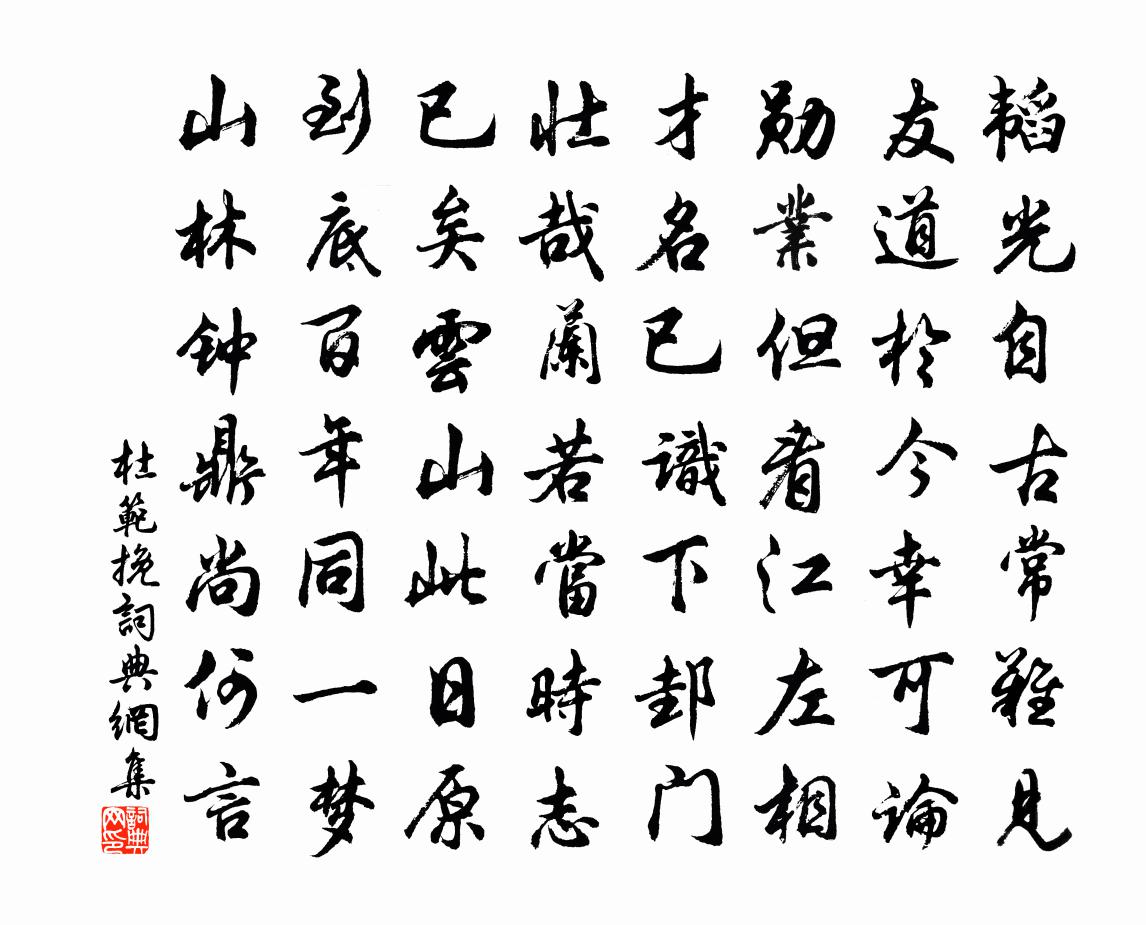 韬光自古常難見
友道於今幸可論
勋業但看江左相
才名已識下邽门
壮哉蘭若當時志
已矣雲山此日原
到底百年同一梦
山林钟鼎尚何言
杜範挽詞典網集
詞典网印